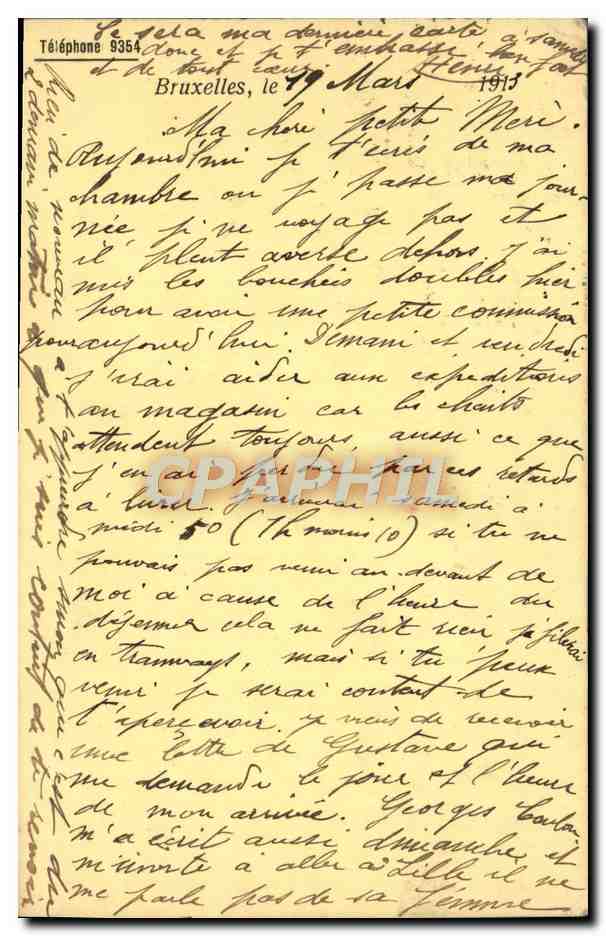 Téléphone 9354
Bruxelles, le 19 Mars 1913
Ma chere petite Mere.
Aujourd'hui je t'ecris de ma
chambre ou j' passe ma jour-
née je ne voyage pas et
il pleut averse dehors j'ai
mis les bouchées doubles hier
pour avoir une petite commission
pour aujourd'hui. Demain et vendredi
j'irai aider aux expeditions
au magasin car les clients
attendent toujours, aussi ce que
j'en ai perdu par ces retards
à livrer. J'arriverai samedi à
midi 50 (1h moins 10) si tu ne
pouvais pas venir au-devant de
moi à cause de l'heure du
déjeuner cela ne fait rien je filerai
en tramways, mais si tu peux
venir je serai content de
t'aperçevoir. je viens de recevoir
une lettre de Gustave qui
me demande le jour et l'heure
de mon arrivée. Georges
m'a écrit aussi dimanche et
m'invite à aller à Lille il ne
me parle pas de sa femme
rien de nouveau a t'apprendre sinon que c'est du
que je suis content de te revoir
Ce sera ma derniere carte à samedi
donc et je t'embrasse bien fort
et de tout coeur. Henri
CPAPHIL